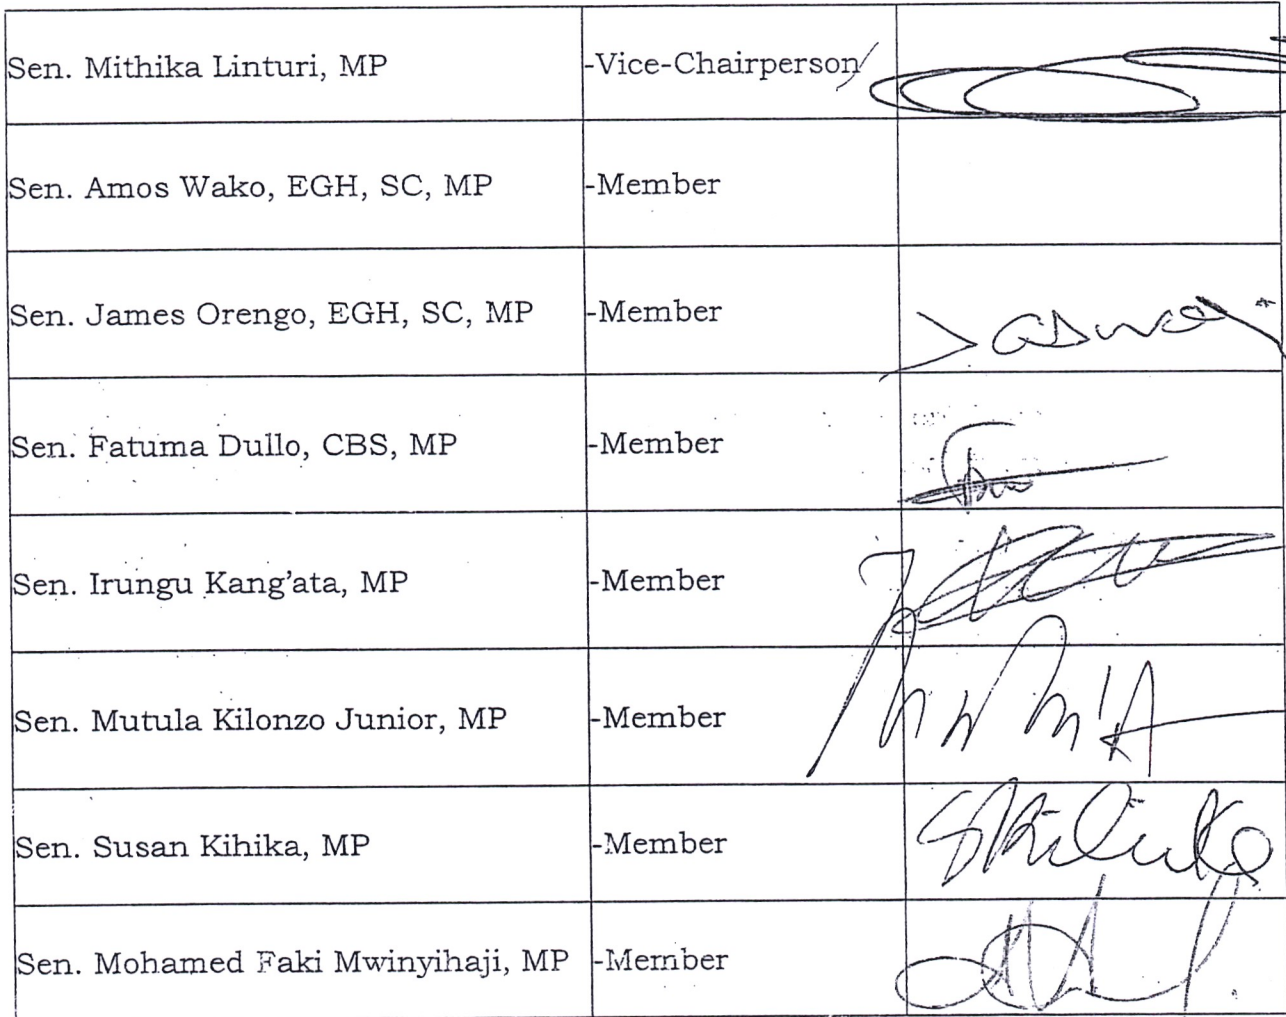 Sen. Mithika Linturi, MP -Vice-Chairperson
Sen. Amos Wako, EGH, SC, MP -Member
Sen. James Orengo, EGH, SC, MP -Member
Sen. Fatuma Dullo, CBS, MP -Member
Sen. Irungu Kang'ata, MP -Member
Sen. Mutula Kilonzo Junior, MP -Member
Sen. Susan Kihika, MP -Member
Sen. Mohamed Faki Mwinyihaji, MP -Member